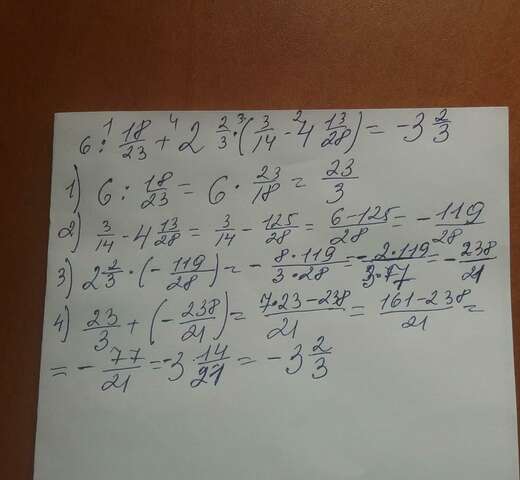 6 : 18/23 + 2 2/3 · (3/14 - 4 13/28) = -3 2/3
1) 6 : 18/23 = 6 · 23/18 = 23/3
2) 3/14 - 4 13/28 = 3/14 - 125/28 = 6-125/28 = - 119/28
3) 2 2/3 · (- 119/28) = - 8·119/3·28 = - 2·119/3·7 = - 238/21
4) 23/3 + (- 238/21) = 7·23-238/21 = 161-238/21 =
= - 77/21 = -3 14/21 = -3 2/3